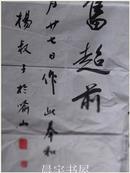 奮超前
月廿七日作此奉和
楊叔子於喻山
晨宝书屋